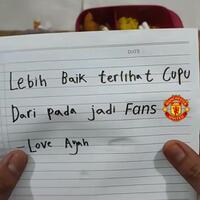 DATE
Lebih Baik terlihat Cupu
Dari pada jadi Fans
- Love Ayah